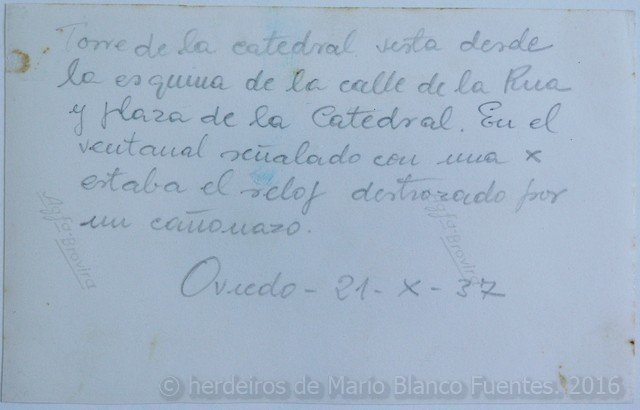 Torre de la catedral vista desde
la esquina de la calle de la Rua
y plaza de la Catedral. En el
ventanal señalado con una x
estaba el reloj destrozado por
un cañonazo.
Oviedo - 21 - X - 37
Agfa-Brovira
Agfa-Brovira
© herdeiros de Mario Blanco Fuentes. 2016